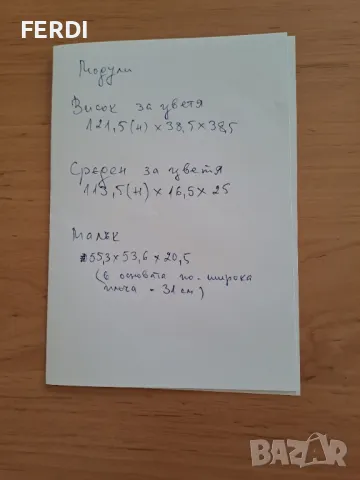 FERDI
Модули
Висок за цветя
121,5(H) x 38,5 x 38,5
Среден за цветя
113,5(H) x 16,5 x 25
Малък
55,3 x 53,6 x 20,5
(в основата по-широка
плоча - 31 см)
BAZAR
bg